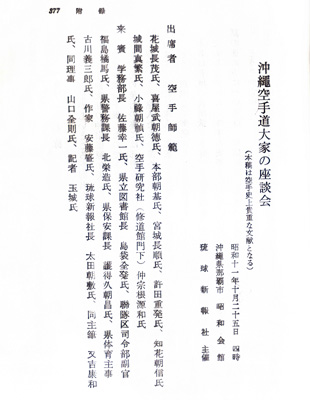 377　附録
沖縄空手道大家の座談会
（本稿は空手史上貴重な文献となる）
昭和十一年十月二十五日　四時
沖縄県那覇市　昭和会館
琉球新報社主催
出席者　空手師範
花城長茂氏、喜屋武朝徳氏、本部朝基氏、宮城長順氏、許田重発氏、知花朝信氏
城間真繁氏、小禄朝禎氏、空手研究社（修道館門下）仲宗根源和氏
来賓　学務部長　佐藤幸一氏、県立図書館長　島袋全発氏、聯隊区司令部副官
福島橘馬氏、県警務課長　北栄造氏、県保安課長　護得久朝昌氏、県体育主事
古川義三郎氏、作家　安藤盛氏、琉球新報社長　太田朝敷氏、同主幹　又吉康和
氏、同理事　山口全則氏、記者　玉城氏